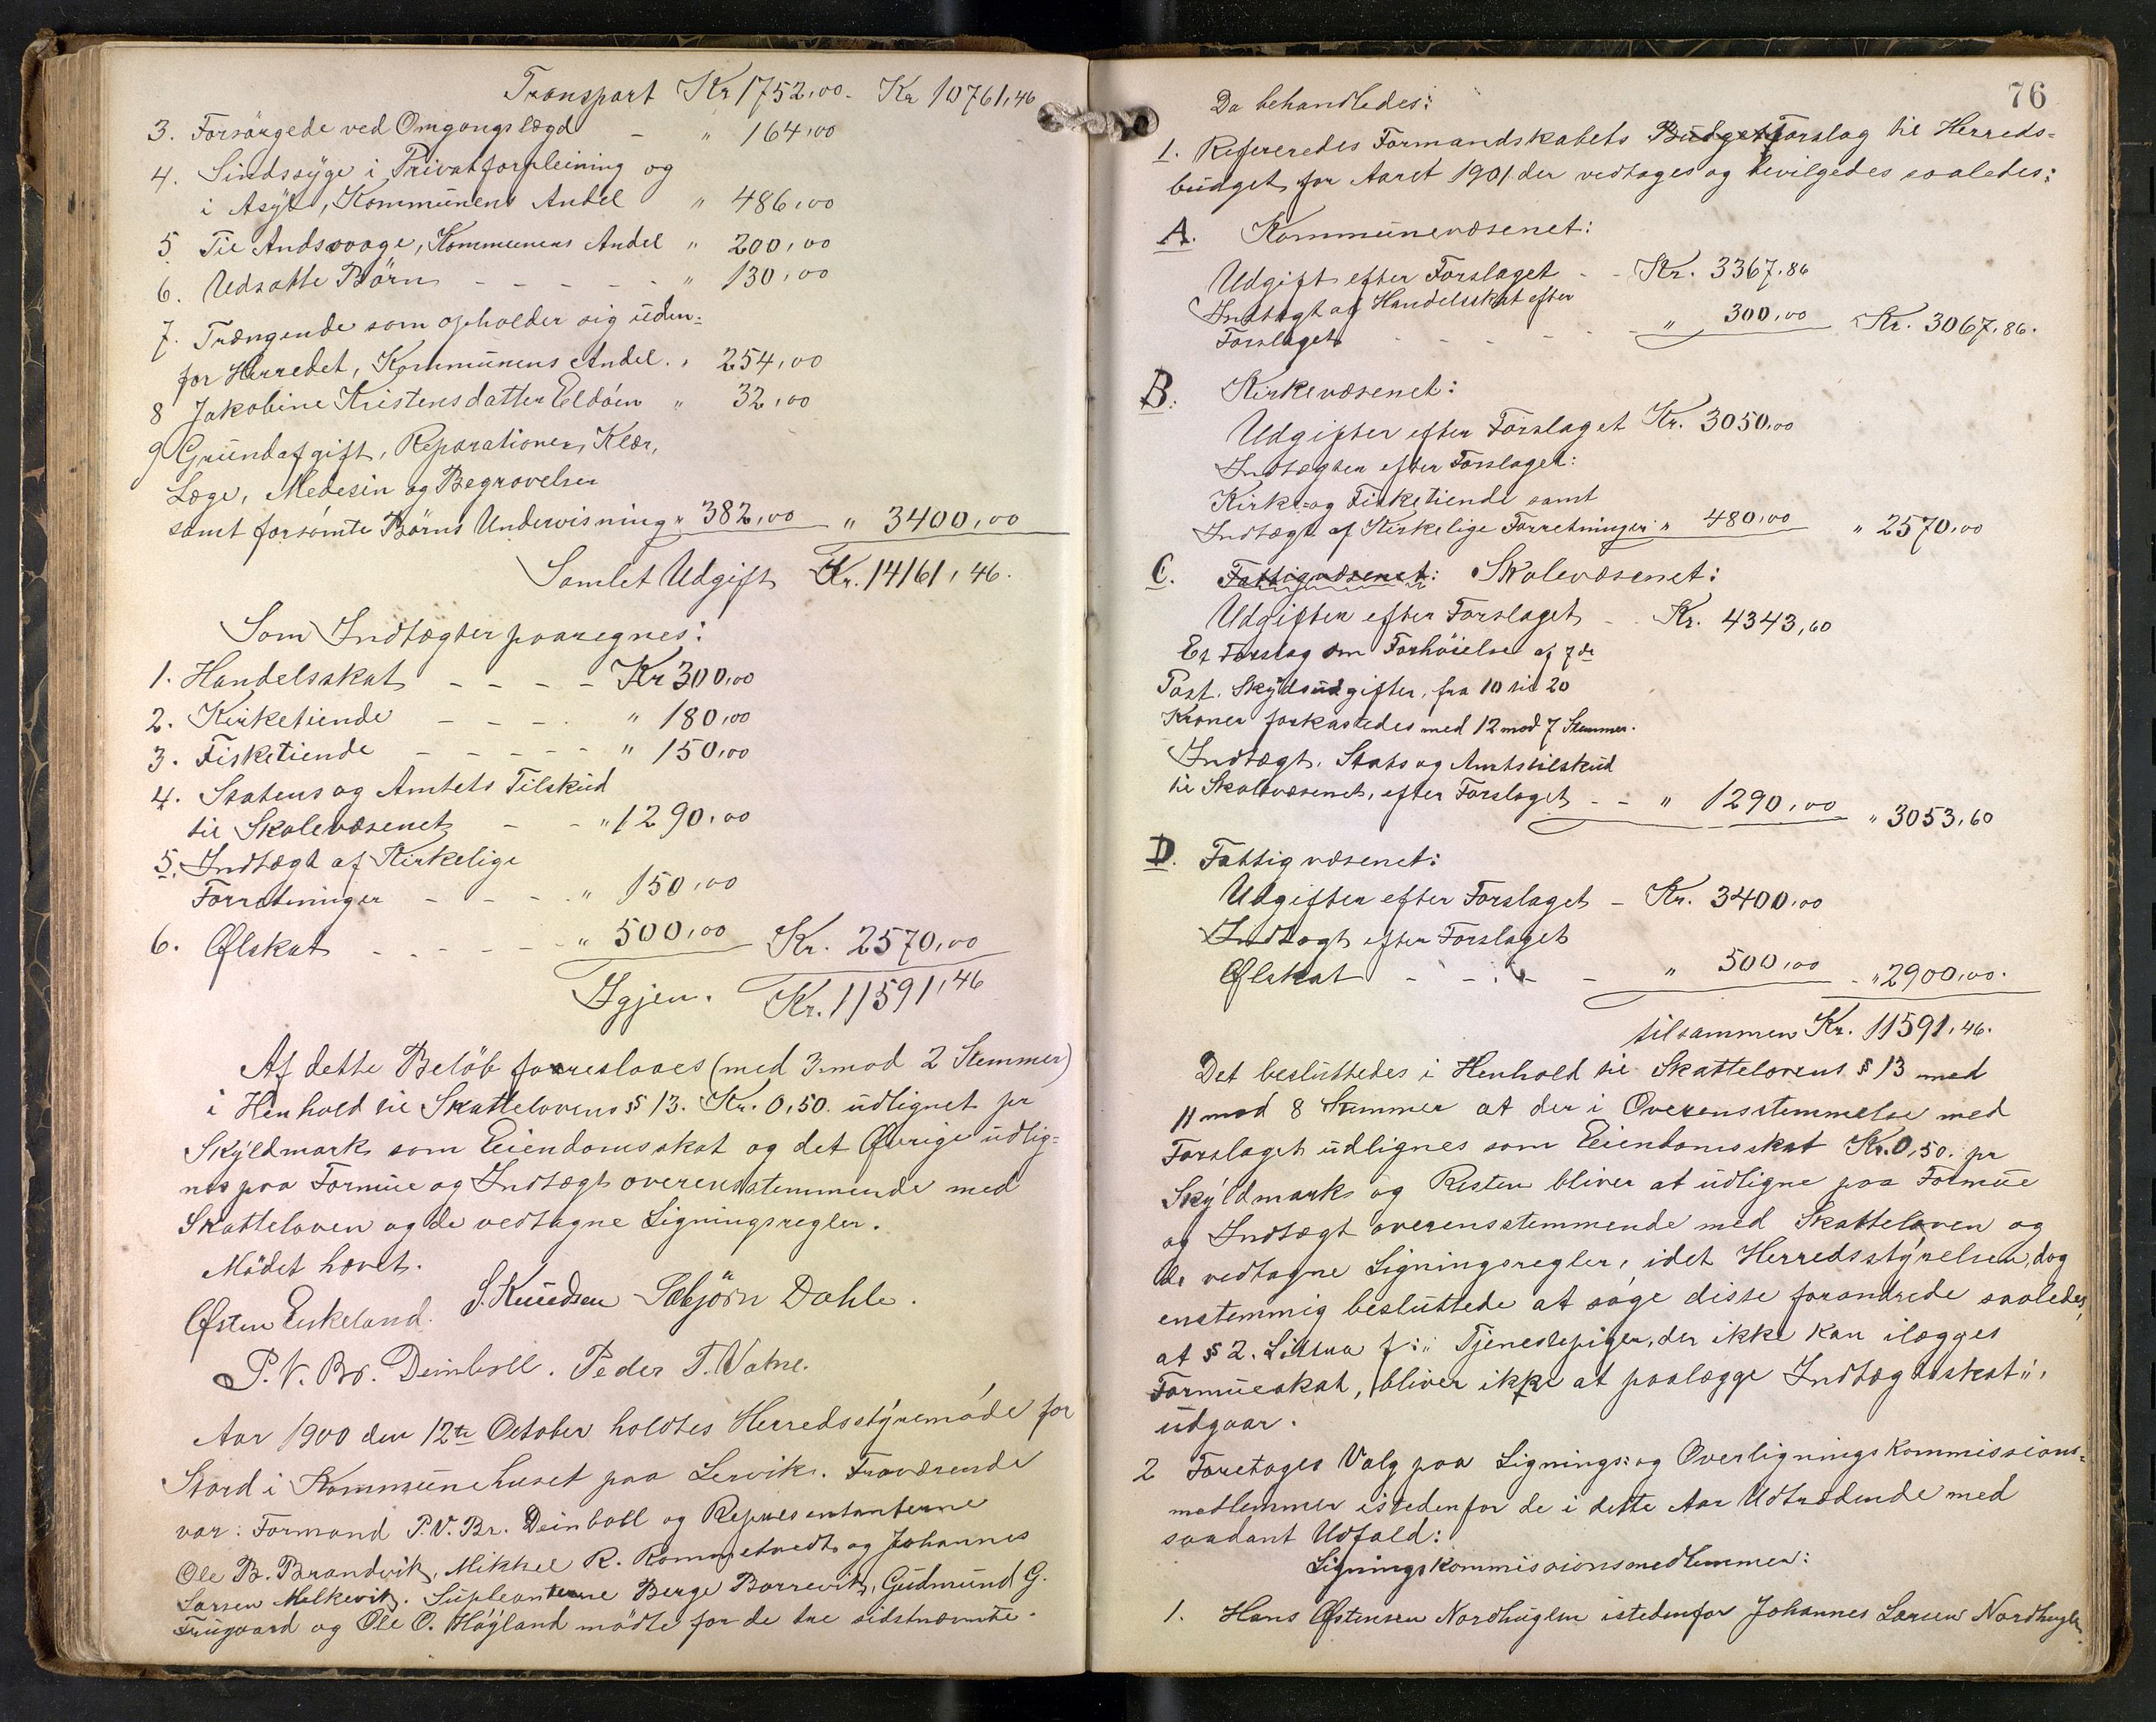 Transport Kr 1752,00. Kr 10761,46
3. Forsørgede ved Omgangslægd - " 164,00
4. Sindssyge i Privatforpleining og
i Asyl, Kommunens Andel " 486,00
5 Til Andsvage, Kommunens Andel " 200,00
6. Udsatte Børn - - - - - " 130,00
7. Trængende som opholder sig uden-
for Herredet, Kommunens Andel. " 254,00
8 Jakobine Kristensdatter Eldøen " 32,00
9 Grundafgift, Reparationer, Klær,
Læge, Medesin og Begravelser
samt forsømte Børns Undervisning " 382,00 " 3400,00
Samlet Udgift Kr. 14161,46.
Som Indtægter paaregnes:
1. Handelsskat - - - - Kr 300,00
2. Kirketiende - - - . " 180,00
3. Fisketiende - - - - - " 150,00
4. Statens og Amtets Tilskud
til Skolevæsenet - - " 1290,00
5. Indtægt af Kirkelige
Forretninger - - - . " 150,00
6. Ølskat - - - - - " 500,00 Kr. 2570,00
Igjen. Kr. 11591,46
Af dette Beløb foreslaaes (med 3 mod 2 Stemmer)
i Henhold til Skattelovens § 13. Kr. 0,50. udlignet pr
Skyldmark som Eiendomsskat og det Øvrige udlig-
nes paa Formue og Indtægt overensstemmende med
Skatteloven og de vedtagne Ligningsregler.
Mödet hævet.
Østen Eskeland. S. Knudsen Sæbjörn Dahle.
P. V. Br. Deinboll. Peder T. Vatne.
Aar 1900 den 12te October holdtes Herredsstyremøde for
Stord i Kommunehuset paa Lervik. Fraværende
var: Formand P. V. Br. Deinboll og Repræsentanterne
Ole B. Brandvik, Mikkel R. Rommetvedt og Johannes
Larsen Melkevik. Supleanterne Berge Borrevik, Gudmund G.
Frugaard og Ole O. Høgland mødte for de tre sidstnævnte.
76
Da behandledes:
1. Refereredes Formandskabets Budget Forslag til Herreds-
budget for Aaret 1901 der vedtages og bevilgedes saaledes:
A. Kommunevæsenet:
Udgift efter Forslaget - - Kr. 3367,86
Indtægt af Handelsskat efter
Forslaget - - - - - " 300,00 Kr. 3067,86.
B. Kirkevæsenet:
Udgifter efter Forslaget Kr. 3050,00
Indtægter efter Forslaget:
Kirke- og Fisketiende samt
Indtægt af Kirkelige Forretninger " 480,00 " 2570,00
C. Fattigvæsenet: Skolevæsenet:
Udgifter efter Forslaget - . Kr. 4343,60
Et Forslag om Forhøielse af 7de
Post. Skydsudgifter, fra 10 til 20
Kroner forkastedes med 12 mod 7 Stemmer.
Indtægt, Stats og Amtstilskud
til Skolevæsenet, efter Forslaget - - " 1290,00 " 3053,60
D. Fattigvæsenet:
Udgifter efter Forslaget - Kr. 3400,00
Indtægt efter Forslaget
Ølskat - - - - - " 500,00 - " 2900,00.
tilsammen Kr. 11591,46.
Det besluttedes i Henhold til Skattelovens § 13 med
11 mod 8 Stemmer at der i Overensstemmelse med
Forslaget udlignes som Eiendomsskat Kr. 0,50. pr
Skyldmark og Resten bliver at udligne paa Formue
og Indtægt overensstemmende med Skatteloven og
de vedtagne Ligningsregler, idet Herredsstyrelsen dog
enstemmig besluttede at søge disse forandrede saaledes,
at § 2. Littra f: „Tjenestepiger, der ikke kan ilægges
Formueskat, bliver ikke at paalægge Indtægtsskat",
udgaar.
2 Foretages Valg paa Lignings- og Overligningskommissions-
medlemmer istedenfor de i dette Aar Udtrædende med
saadant Udfald:
Ligningskommissionsmedlemmer:
1. Hans Østensen Nordhuglen istedenfor Johannes Larsen Nordhuglen.